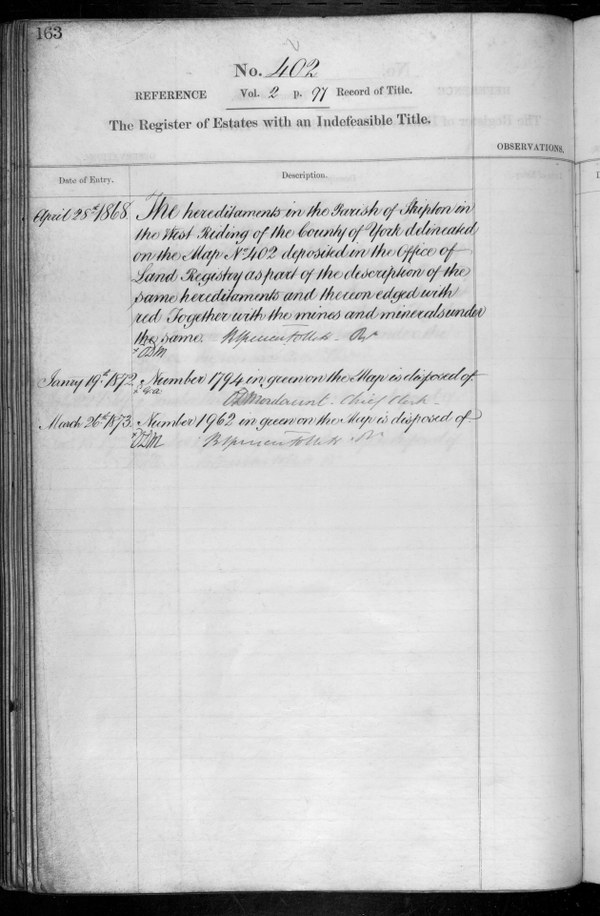 163
No. 402
REFERENCE Vol. 2 p. 97 Record of Title.
The Register of Estates with an Indefeasible Title.
OBSERVATIONS.
Date of Entry. Description.
April 28th 1868. The hereditaments in the Parish of Skipton in
the West Riding of the County of York delineated
on the Map No 402 deposited in the Office of
Land Registry as part of the description of the
same hereditaments and thereon edged with
red Together with the mines and minerals under
the same. Rt
Janry 19th 1872. Number 1794 in green on the Map is disposed of
Mordaunt. Chief Clerk.
March 26th 1873. Number 1962 in green on the Map is disposed of